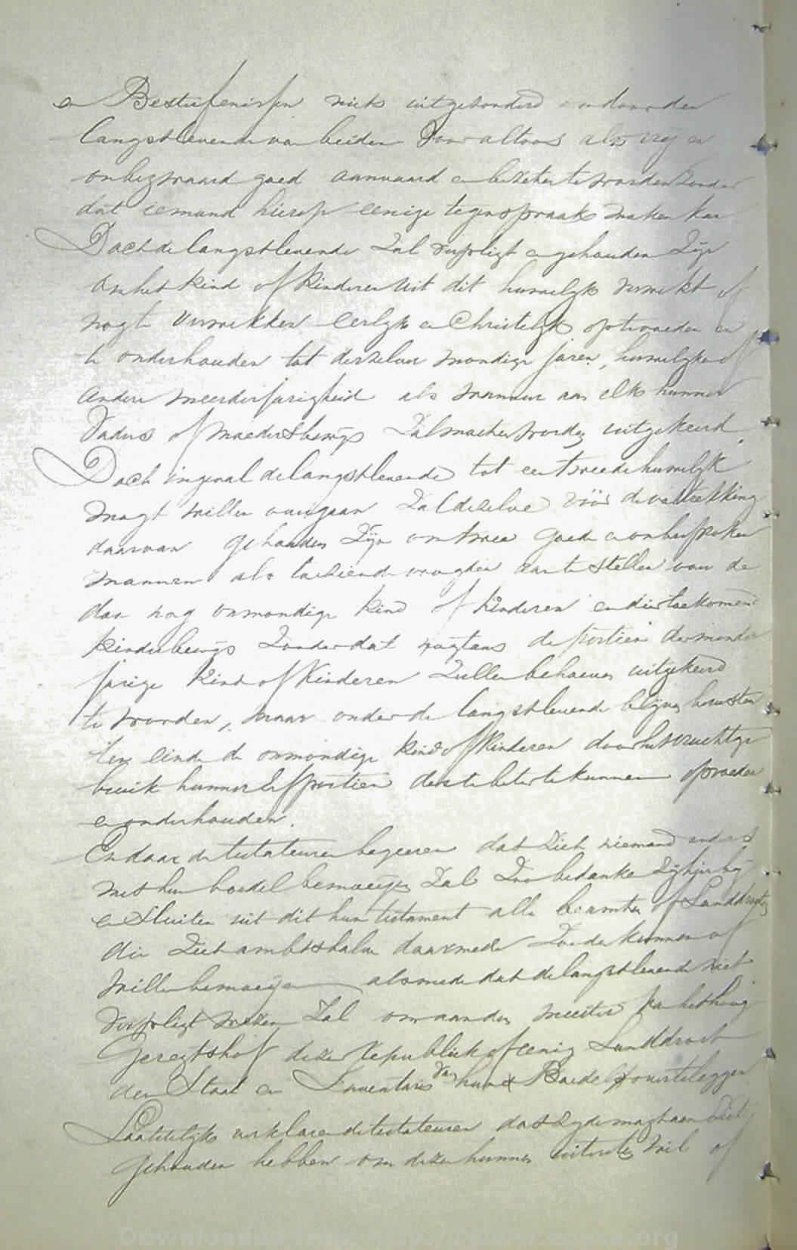 en Besterfenissen niets uitgesonderd en door den
langstlevende van beiden Voor altoos als vry en
onbezwaard goed aanvaard en bezeten te worden zonder
dat iemand hierop eenige tegenspraak maken kan
Doch de langstlevende Zal verpligt en gehouden Zijn
om het kind of kinderen uit dit huwelyk verwekt of
nogte verwekken eerlyk en Christelyk optevoeden en
te onderhouden tot derzelver mondige jaren, huwelyken of
andere meerderjarigheid als wanneer aan elks hunner
Vaders of Moeders bewys Zal moeten worden uitgekeerd
Doch ingeval de langstlevende tot een tweede huwelyk
mogt willen overgaan Zal dezelve vóór de voltrekking
daarvan gehouden Zijn om twee goede en onbesproken
mannen als toeziende voogden aan te stellen over de
dan nog onmondige kind of kinderen en die toekomend
kinderbewys Zonder dat nogtans de portien der minder
jarige kind of kinderen Zullen behoeven uitgekeerd
te worden, maar onder de langstlevende blijven berusten
ten einde de onmondige kind of kinderen door het vruchtge
bruik hunner Erfportien deste beter te kunnen opvoeden
en onderhouden.
En daar de testateuren begeeren dat Zich niemand anders
met hun boedel bemoeijen Zal Zoo bedanken Zij hierbij
en Sluiten uit dit hun testament alle beamten of Landdrosten
die Zich ambtshalve daarmede Zouden kunnen of
willen bemoeijen alsmede dat de langstlevende niet
verpligt wezen Zal om aan den meester van het hoog
Geregtshof dezer Republiek of eenig Landdrost
den Staat en Inventaris van hunne Boedel overteleggen
Laatstelyk verklaren de testateuren dat Zy de magt aan Zich
gehouden hebben om deze hunnen uitersten wil of